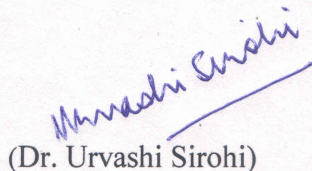 Urvashi Sirohi
(Dr. Urvashi Sirohi)